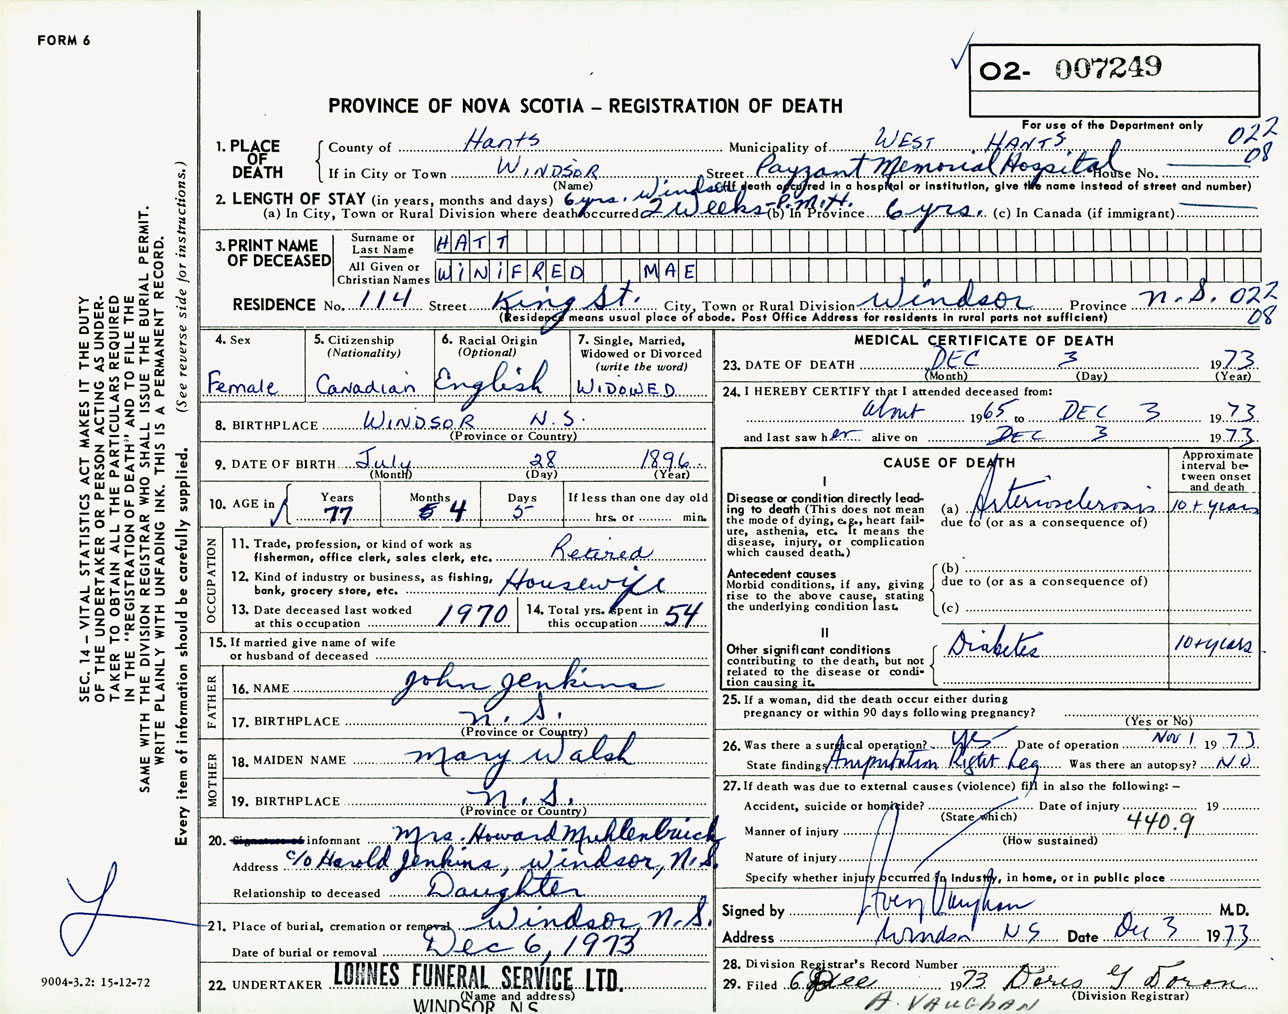 FORM 6
O2- 007249
PROVINCE OF NOVA SCOTIA – REGISTRATION OF DEATH
For use of the Department only
022
08
1. PLACE OF DEATH
County of Hants Municipality of WEST HANTS
If in City or Town WINDSOR Street Payzant Memorial Hospital House No.
(Name) (If death occurred in a hospital or institution, give the name instead of street and number)
2. LENGTH OF STAY (in years, months and days) 6 yrs. Windsor
(a) In City, Town or Rural Division where death occurred 2 Weeks - P.M.H. (b) In Province 6 yrs. (c) In Canada (if immigrant)
3. PRINT NAME OF DECEASED
Surname or Last Name HATT
All Given or Christian Names WINIFRED MAE
RESIDENCE No. 114 Street King St. City, Town or Rural Division Windsor Province N.S. 022
08
(Residence means usual place of abode. Post Office Address for residents in rural parts not sufficient)
4. Sex
Female
5. Citizenship
(Nationality)
Canadian
6. Racial Origin
(Optional)
English
7. Single, Married,
Widowed or Divorced
(write the word)
WIDOWED
8. BIRTHPLACE WINDSOR N.S.
(Province or Country)
9. DATE OF BIRTH July 28 1896
(Month) (Day) (Year)
10. AGE in
Years Months Days If less than one day old
77 5 4 5 hrs. or min.
OCCUPATION
11. Trade, profession, or kind of work as
fisherman, office clerk, sales clerk, etc. Retired
12. Kind of industry or business, as fishing,
bank, grocery store, etc. Housewife
13. Date deceased last worked
at this occupation 1970
14. Total yrs. spent in
this occupation 54
15. If married give name of wife
or husband of deceased
FATHER
16. NAME John Jenkins
17. BIRTHPLACE N.S.
(Province or Country)
MOTHER
18. MAIDEN NAME Mary Walsh
19. BIRTHPLACE N.S.
(Province or Country)
20. Signature of informant Mrs. Howard Muhlenbruick
Address c/o Harold Jenkins, Windsor, N.S.
Relationship to deceased Daughter
21. Place of burial, cremation or removal Windsor, N.S.
Date of burial or removal Dec 6, 1973
22. UNDERTAKER LOHNES FUNERAL SERVICE LTD.
(Name and address)
WINDSOR, N.S.
MEDICAL CERTIFICATE OF DEATH
23. DATE OF DEATH DEC 3 1973
(Month) (Day) (Year)
24. I HEREBY CERTIFY that I attended deceased from:
about 1965 to DEC 3 1973
and last saw her alive on DEC 3 1973
CAUSE OF DEATH
Approximate
interval be-
tween onset
and death
I
Disease or condition directly lead-
ing to death (This does not mean
the mode of dying, e.g., heart fail-
ure, asthenia, etc. It means the
disease, injury, or complication
which caused death.)
(a) Arteriosclerosis 10+years
due to (or as a consequence of)
Antecedent causes
Morbid conditions, if any, giving
rise to the above cause, stating
the underlying condition last.
(b)
due to (or as a consequence of)
(c)
II
Other significant conditions
contributing to the death, but not
related to the disease or condi-
tion causing it.
Diabetes 10+years
25. If a woman, did the death occur either during
pregnancy or within 90 days following pregnancy?
(Yes or No)
26. Was there a surgical operation? Yes Date of operation Nov 1 1973
State findings Amputation Right Leg Was there an autopsy? NO
27. If death was due to external causes (violence) fill in also the following: –
Accident, suicide or homicide? Date of injury 19
(State which)
Manner of injury 440.9
(How sustained)
Nature of injury
Specify whether injury occurred in Industry, in home, or in public place
Signed by Avery Vaughan M.D.
Address Windsor NS Date Dec 3 1973
28. Division Registrar's Record Number
29. Filed 6 Dec 1973 Doris G Doran
(Division Registrar)
A. VAUGHAN
SEC. 14 – VITAL STATISTICS ACT MAKES IT THE DUTY
OF THE UNDERTAKER OR PERSON ACTING AS UNDER-
TAKER TO OBTAIN ALL THE PARTICULARS REQUIRED
IN THE "REGISTRATION OF DEATH" AND TO FILE THE
SAME WITH THE DIVISION REGISTRAR WHO SHALL ISSUE THE BURIAL PERMIT.
WRITE PLAINLY WITH UNFADING INK. THIS IS A PERMANENT RECORD.
Every item of information should be carefully supplied. (See reverse side for instructions.)
9004-3.2: 15-12-72